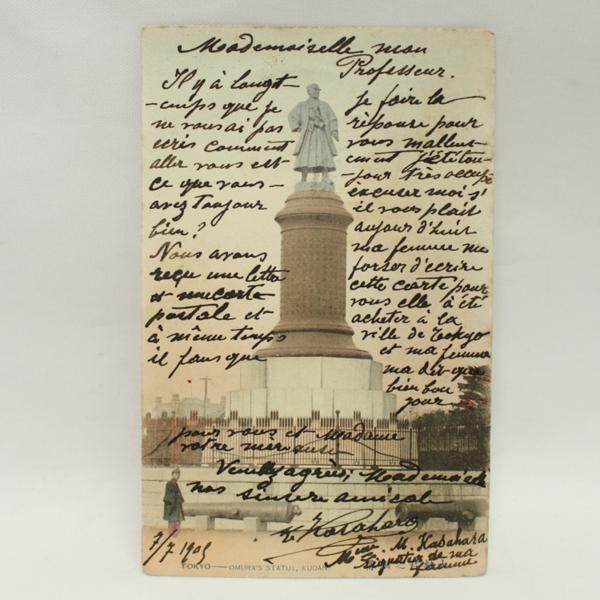 Mademoiselle mon
Professeur.
Il y à longt-
-emps que je
ne vous ai pas
ecris comment
aller vous est-
ce que vous-
avez toujour
bien?
Nous avons
reçu une lettre
et une carte
postale et
à même temps
il faus que
je faire la
réponse pour
vous malleus-
ement j'été tou-
-jour très occupé
excuser moi s'
il vous plait
aujour d'huit
ma femme me
forser d'écrire
cette carte pour
vous elle à été
acheter à la
ville de Tokyo
et ma femme
ma dit que
bien bon
jour
pour vous et Madame
votre mère
Veuillez agréer, Mademoiselle
nos sincere amical
K. Kasahara
Mme. M. Kasahara
Signateur de ma
femme
7/7 1905
TOKYO — OMURA'S STATUE, KUDAN